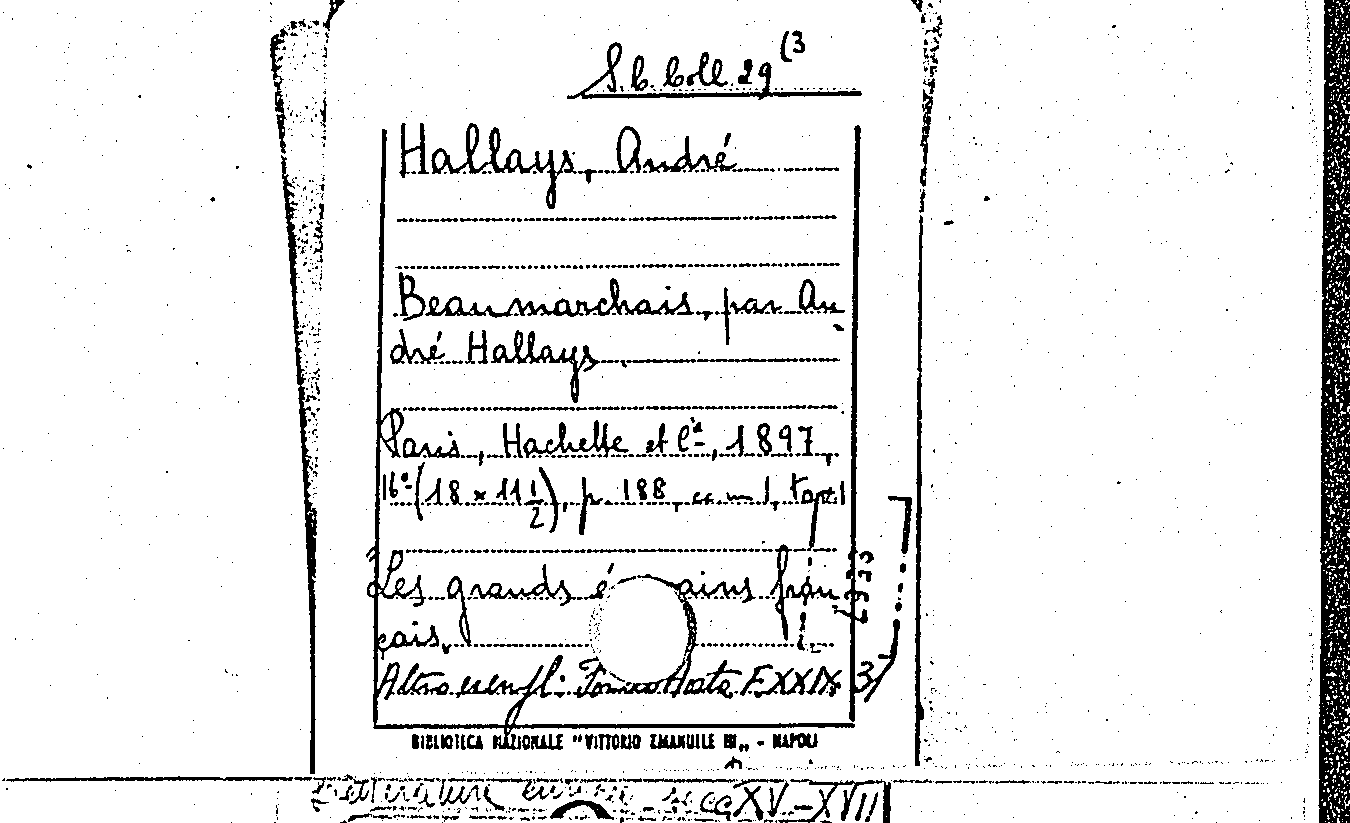 S. C. Coll. 29 (3
Hallays, André
Beaumarchais, par An
dré Hallays.
Paris, Hachette et Cⁱᵉ, 1897,
16°(18 × 11 1/2), p. 188, con 1
"Les grands é ains fran
çais"
Altro esempl: Fondo F. XXIX 3
BIBLIOTECA NAZIONALE "VITTORIO EMANUELE III„ - NAPOLI
XV-XVII